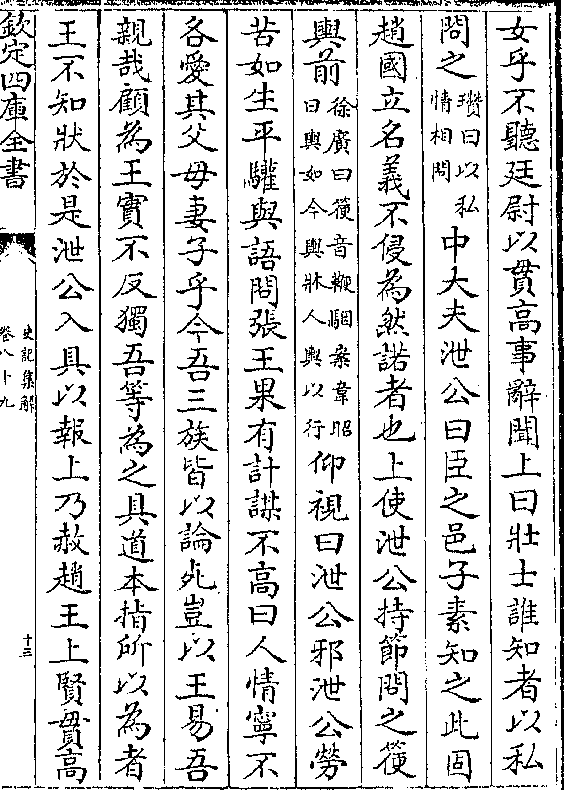 女乎不聽廷尉以貫高事辭聞上曰壯士誰知者以私
問之瓚曰以私情相問中大夫泄公曰臣之邑子素知之此固
趙國立名義不侵為然諾者也上使泄公持節問之箯
輿前徐廣曰箯音鞭駰案韋昭曰輿如今輿牀人輿以行仰視曰泄公邪泄公勞
苦如生平驩與語問張王果有計謀不高曰人情寧不
各愛其父母妻子乎今吾三族皆以論死豈以王易吾
親哉顧為王實不反獨吾等為之具道本指所以為者
王不知狀於是泄公入具以報上乃赦趙王上賢貫高
欽定四庫全書
史記集解
卷八十九
十三